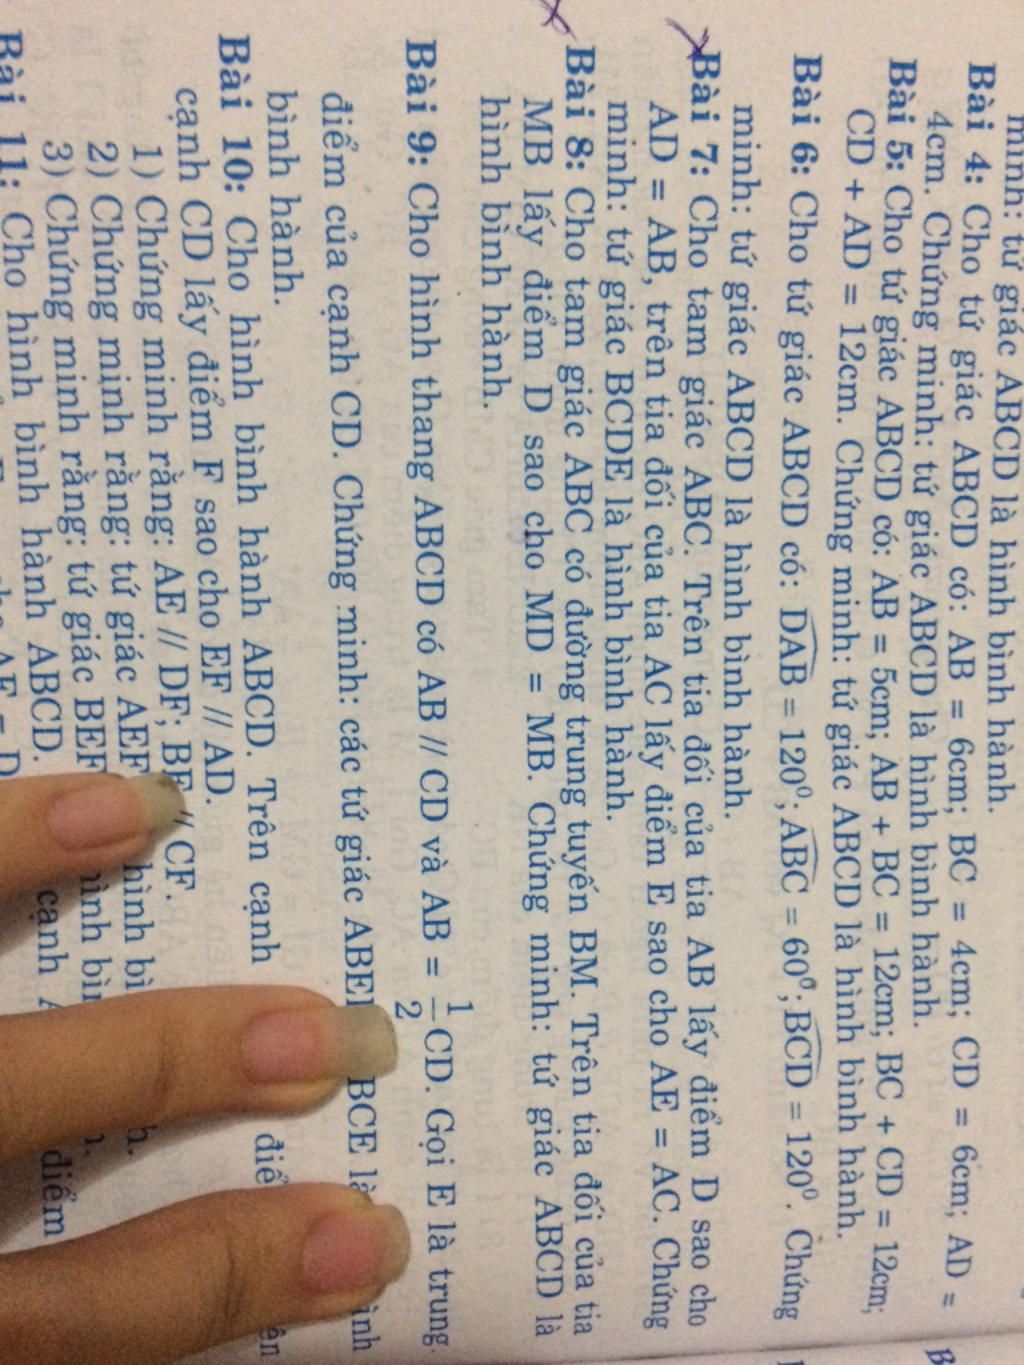 minh: tứ giác ABCD là hình bình hành.
Bài 4: Cho tứ giác ABCD có: AB = 6cm; BC = 4cm; CD = 6cm; AD =
4cm. Chứng minh: tứ giác ABCD là hình bình hành.
Bài 5: Cho tứ giác ABCD có: AB = 5cm; AB + BC = 12cm; BC + CD = 12cm;
CD + AD = 12cm. Chứng minh: tứ giác ABCD là hình bình hành.
Bài 6: Cho tứ giác ABCD có: DAB = 120⁰; ABC = 60⁰; BCD = 120⁰. Chứng
minh: tứ giác ABCD là hình bình hành.
Bài 7: Cho tam giác ABC. Trên tia đối của tia AB lấy điểm D sao cho
AD = AB, trên tia đối của tia AC lấy điểm E sao cho AE = AC. Chứng
minh: tứ giác BCDE là hình bình hành.
Bài 8: Cho tam giác ABC có đường trung tuyến BM. Trên tia đối của tia
MB lấy điểm D sao cho MD = MB. Chứng minh: tứ giác ABCD là
hình bình hành.
Bài 9: Cho hình thang ABCD có AB // CD và AB = 1/2 CD. Gọi E là trung
điểm của cạnh CD. Chứng minh: các tứ giác BCE là
bình hành.
Bài 10: Cho hình bình hành ABCD. Trên cạnh
cạnh CD lấy điểm F sao cho EF // AD.
1) Chứng minh rằng: AE // DF; BE // CF.
2) Chứng minh rằng: tứ giác hình
3) Chứng minh rằng: tứ giác
Bài 11: Cho hình bình hành ABCD. cạnh điểm